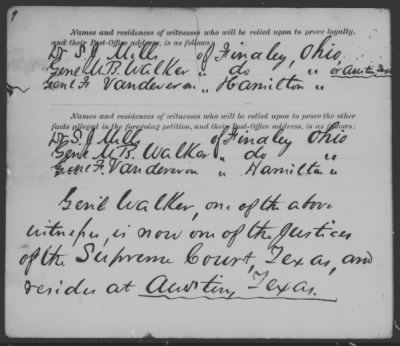 Names and residences of witnesses who will be relied upon to prove loyalty,
and their Post-Office address, is as follows
Dr S. J. Mills of Findley, Ohio
Genl M. B. Walker " do " " or Austin Texas
Genl F. Vanderveron " Hamilton "
Names and residences of witnesses who will be relied upon to prove the other
facts alleged in the foregoing petition, and their Post-Office address, is as follows:
Dr S. J. Mills of Findley Ohio
Genl M. B. Walker " do "
Genl F. Vanderveron " Hamilton "
Genl Walker, one of the above
witnesses, is now one of the Justices
of the Supreme Court, Texas, and
resides at Austin, Texas.